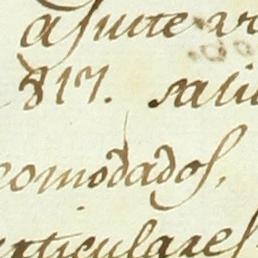 ajuste
817. sali
comodados,
articulares